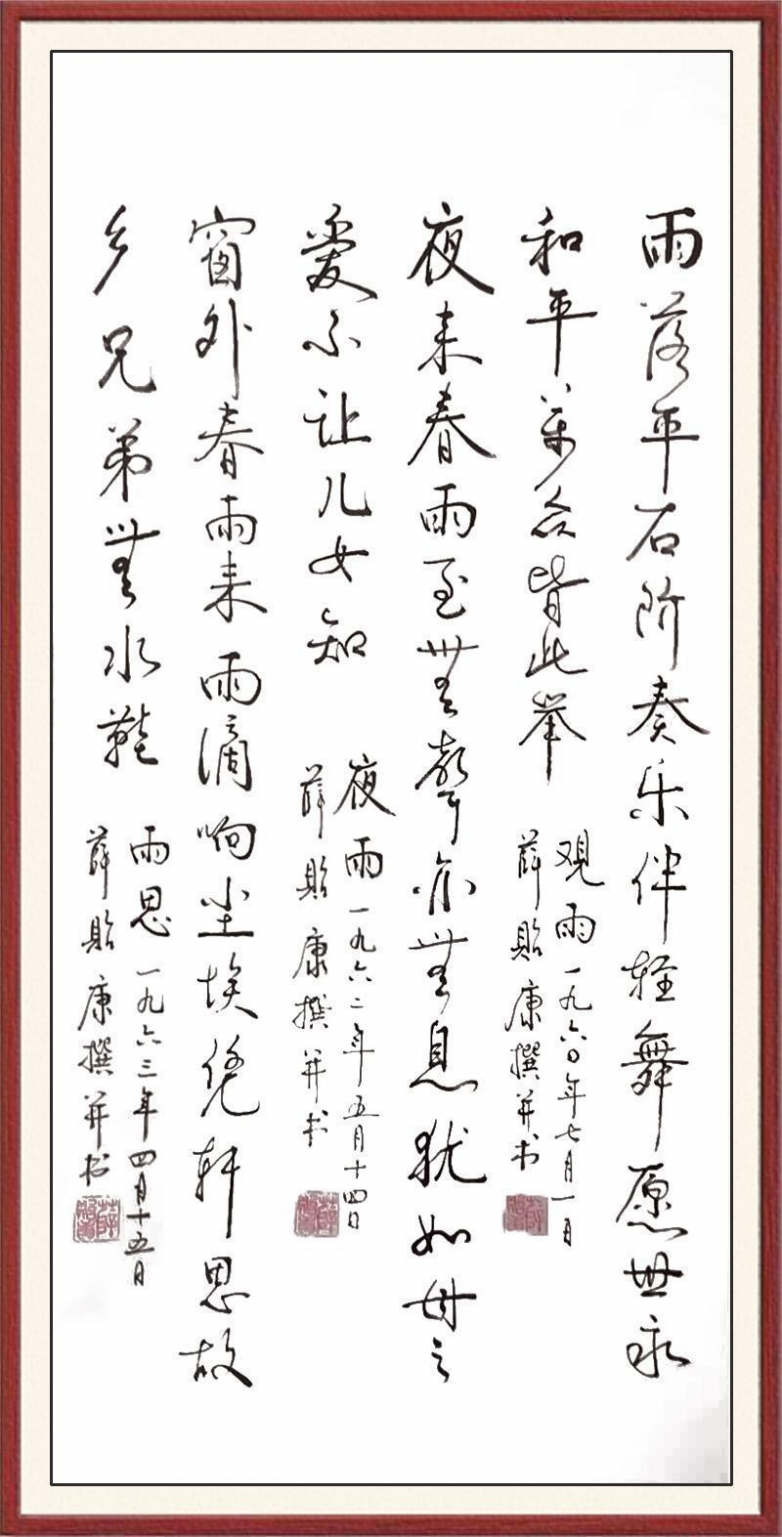 雨落平石阶奏乐伴轻舞愿世永
和平万众皆此举
观雨一九六〇年七月一日
薛贻康撰并书
夜来春雨至無声亦無息犹如母之
爱不让儿女知
夜雨一九六二年五月十四日
薛贻康撰并书
窗外春雨来雨滴响尘埃凭轩思故
乡兄弟無水鞋
雨思一九六三年四月十五日
薛贻康撰并书